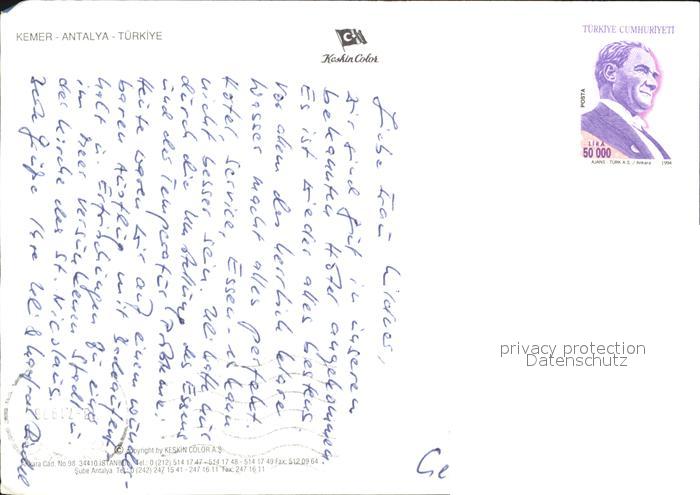 KEMER - ANTALYA - TÜRKİYE
Keskin Color
TÜRKİYE CUMHURİYETİ
POSTA
LİRA
50 000
AJANS - TÜRK A.Ş. / Ankara 1994
Liebe Frau
wir sind gut in unserem
bekannten Hotel angekommen.
Es ist wieder alles bestens
vor allem das herrlich klare
Wasser macht alles perfekt.
Hotel, Service, Essen - es kann
nicht besser sein. Uli hatte nur
durch die Umstellung des Essens
und der Temperatur Probleme.
Heute waren wir auf einem wunder-
baren Ausflug mit Badeaufent-
halt in
im Meer versunkenen Stadt u.
der Kirche des St. Nicolaus.
Grüße Ihre Uli &
privacy protection
Datenschutz
© Copyright by KESKİN COLOR A.Ş.
Ankara Cad. No.98 34410 İSTANBUL Tel.: 0 (212) 514 17 47 - 514 17 48 - 514 17 49 Fax: 512 09 64
Şube Antalya Tel.: 0 (242) 247 15 41 - 247 16 11 Fax: 247 16 11
Ge